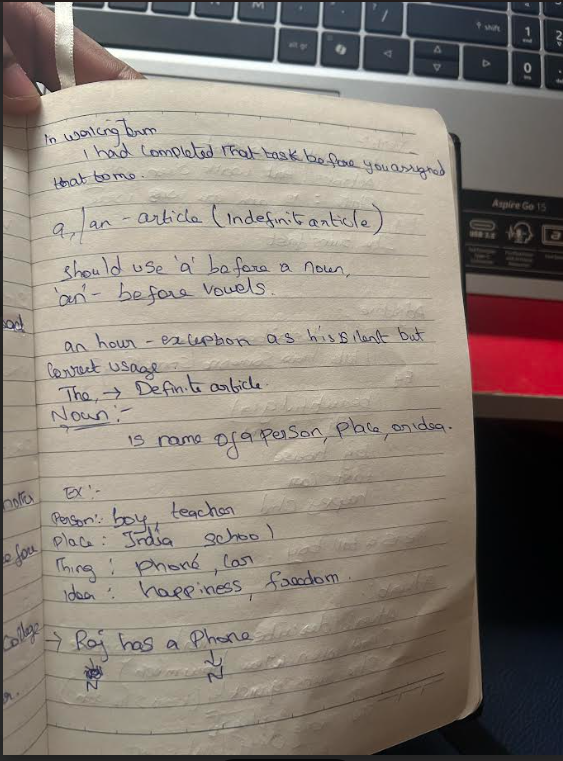 In working term
I had completed that task before you assigned
that to me.
a, / an - article (Indefinit article)
should use 'a' before a noun,
'an' - before vowels.
an hour - exception as h is silent but
correct usage.
The, → Definite article.
Noun :-
is name of a person, place, or idea.
Ex :-
Person : boy, teacher
Place : India school
Thing : phone, car
Idea : happiness, freedom.
→ Raj has a Phone
N N
college
Aspire Go 15
USB 3.0
shift
alt gr
1
end
2
0
ins